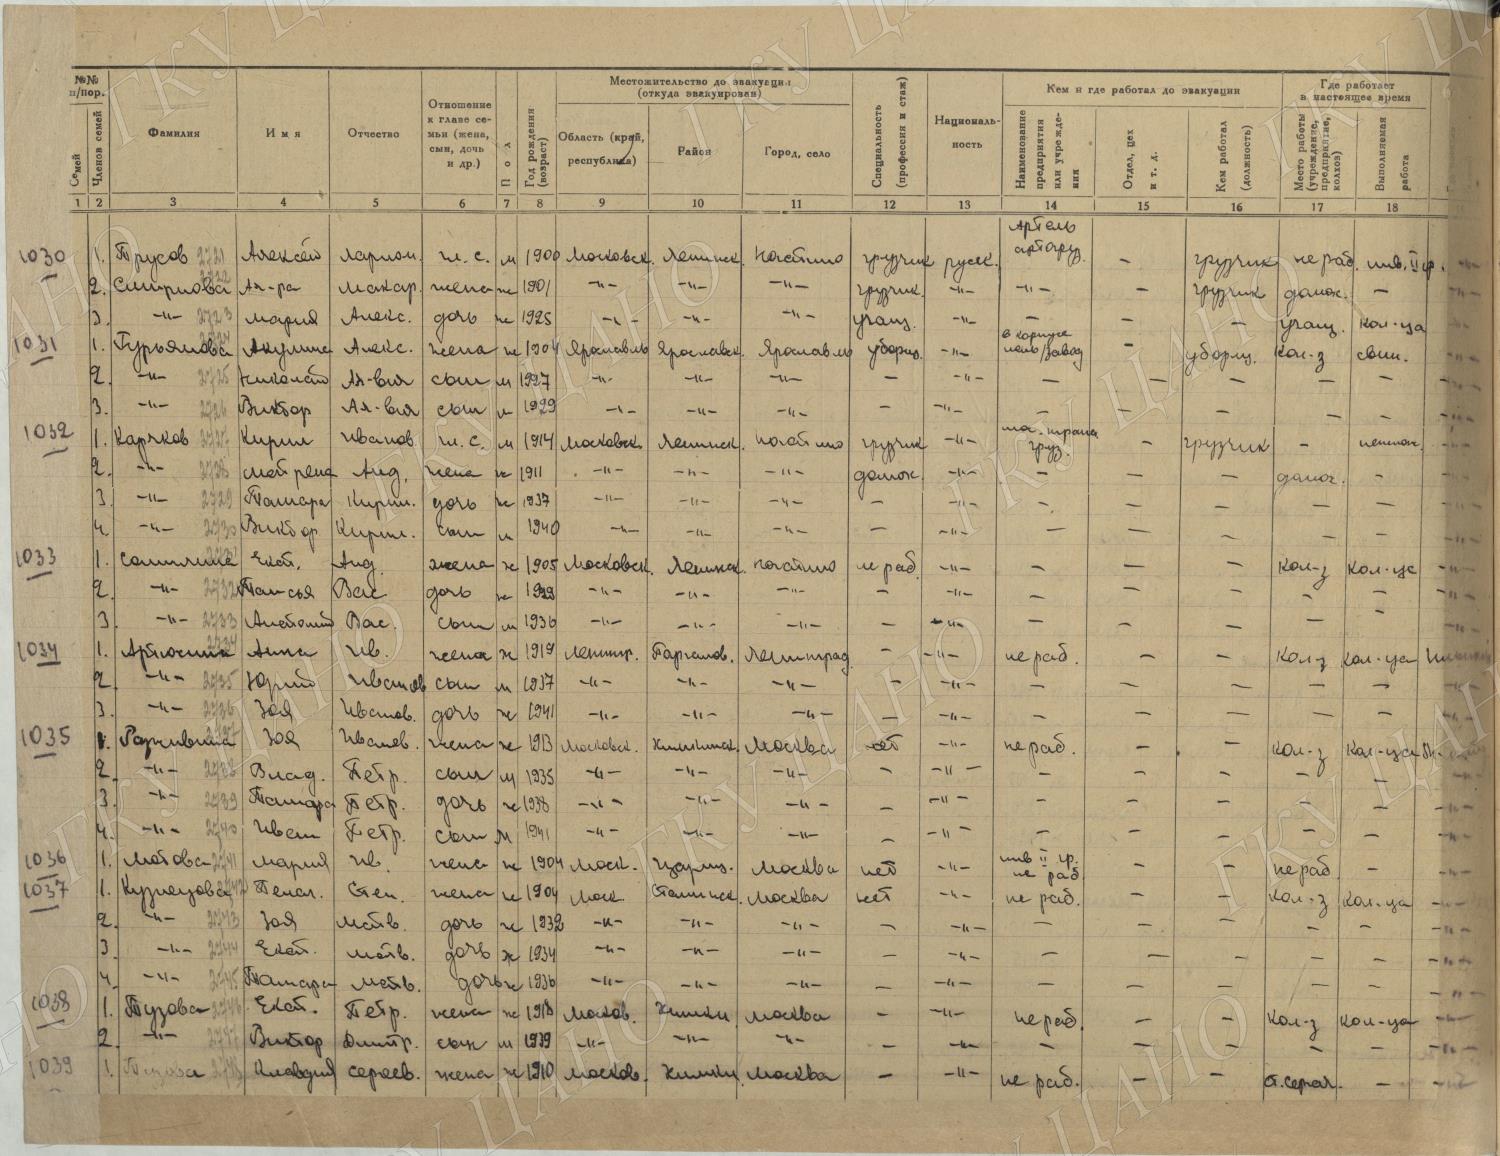 №№ п/пор.
Семей
Членов семей
Фамилия
Имя
Отчество
Отношение к главе семьи (жена, сын, дочь и др.)
Пол
Год рождения (возраст)
Местожительство до эвакуации (откуда эвакуирован)
Область (край, республика)
Район
Город, село
Специальность (профессия и стаж)
Националь-ность
Кем и где работал до эвакуации
Наименование предприятия или учреждения
Отдел, цех и т. д.
Кем работал (должность)
Где работает в настоящее время
Место работы (учреждение, предприятие, колхоз)
Выполняемая работа
1 2 3 4 5 6 7 8 9 10 11 12 13 14 15 16 17 18
1030 1. Трусов 2721 Алексей Ларион. м 1900 Московск. Ленинск. грузчик русск. Артель грузчик не раб. инв. II гр.
2. Смирнова 2722 Ал-ра Макар. жена ж 1901 -"- -"- -"- грузчик. -"- -"- – грузчик домох. –
3. -"- 2723 Мария Алекс. дочь ж 1925 -"- -"- -"- учащ. -"- – – – учащ. кол-ца
1031 1. Гурьянова Акулина Алекс. жена ж 1904 Ярославль Ярославск. Ярославль уборщ. -"- завод – уборщ. кол-з свин.
2. -"- 2725 Николай сын м 1927 -"- -"- -"- -"- – – – – –
3. -"- 2726 Виктор сын м 1929 -"- -"- -"- – -"- – – – – –
1032 1. Каряков 2727 Кирил Иванов. м 1914 Московск. Ленинск. грузчик -"- груз. – грузчик –
2. -"- 2728 Матрена Анд. жена ж 1911 -"- -"- -"- домох. -"- – – – домох. –
3. -"- 2729 Тамара Кирил. дочь ж 1937 -"- -"- -"- – -"- – – – – –
4. -"- 2730 Виктор Кирил. сын м 1940 -"- -"- -"- – -"- – – – – –
1033 1. Екат. Анд. жена ж 1905 Московск. Ленинск. не раб. -"- – – – кол-з кол-ца
2. -"- 2732 Таисья Вас дочь ж -"- -"- -"- – -"- – – – – –
3. -"- 2733 Анатолий Вас. сын м 1936 -"- -"- -"- – -"- – – – – –
1034 1. Артюшина 2734 Анна Ив. жена ж 1917 Ленингр. Паргалов. Ленинград – -"- не раб. – – кол-з кол-ца
2. -"- 2735 Юрий Иванов сын м 1937 -"- -"- -"- – -"- – – – – –
3. -"- 2736 Зоя Иванов. дочь ж 1941 -"- -"- -"- – -"- – – – – –
1035 1. Разживина 2737 Зоя Иванов. жена ж 1913 Московск. Химкинск. Москва нет -"- не раб. – – кол-з кол-ца
2. -"- 2738 Влад. Петр. сын м 1935 -"- -"- -"- – -"- – – – – –
3. -"- 2739 Тамара Петр. дочь ж 1938 -"- -"- -"- – -"- – – – – –
4. -"- 2740 Иван Петр. сын м 1941 -"- -"- -"- – -"- – – – – –
1036 1. Мотова 2741 Мария Ив. жена ж 1904 Моск. Москва нет -"- инв II гр. не раб – – не раб –
1037 1. Кузнецова 2742 Пелаг. Степ. жена ж 1904 Моск Сталинск. Москва нет -"- не раб. – – кол-з кол-ца
2. -"- 2743 Зоя Матв. дочь ж 1932 -"- -"- -"- – -"- – – – – –
3. -"- 2744 Екат. Матв. дочь ж 1934 -"- -"- -"- – -"- – – – – –
4. -"- 2745 Тамара Матв. дочь ж 1936 -"- -"- -"- – -"- – – – – –
1038 1. Тузова 2746 Екат. Петр. жена ж 1918 Москов. Химки Москва – -"- не раб. – – кол-з кол-ца
2. -"- 2747 Виктор Дмитр. сын м 1939 -"- -"- -"- – -"- – – – – –
1039 1. 2748 Клавдия Сергеев. жена ж 1910 Москов. Химки Москва – -"- не раб. – – –
ГКУ ЦАНО